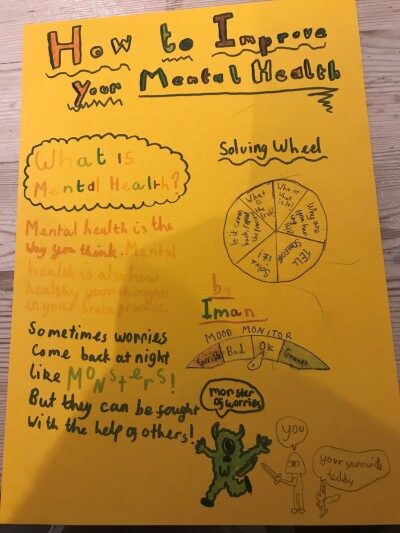 How to Improve
your Mental Health
What is
Mental Health?
Mental health is the
way you think. Mental
health is also how
healthy your thoughts
in your brain process.
Sometimes worries
come back at night
like Monsters!
But they can be fought
with the help of others!
Solving Wheel
What
Who or
what
is it?
Why are
you
TELL
SOMEONE
Solve
it!
by
Iman
MOOD MONITOR
Bad
OK
monster
of worries
you
your
teddy